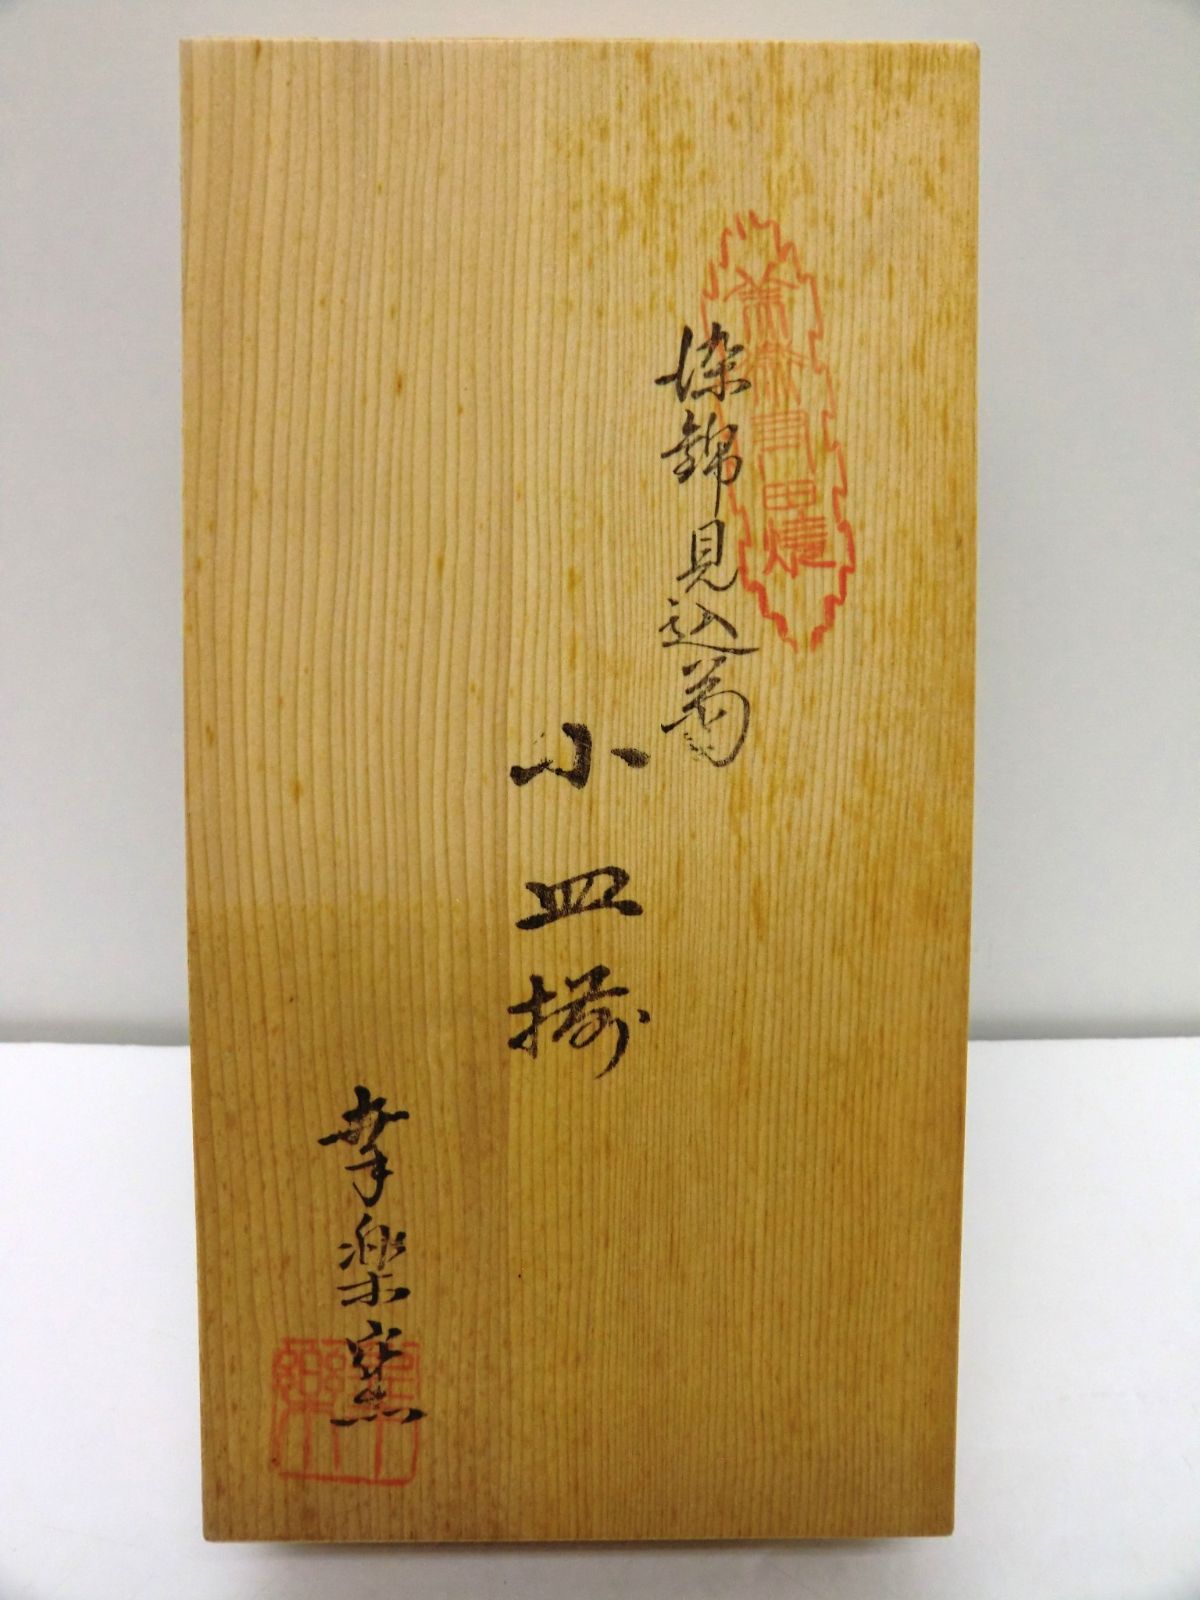 染錦見込菊
小皿揃
幸楽窯
有田焼